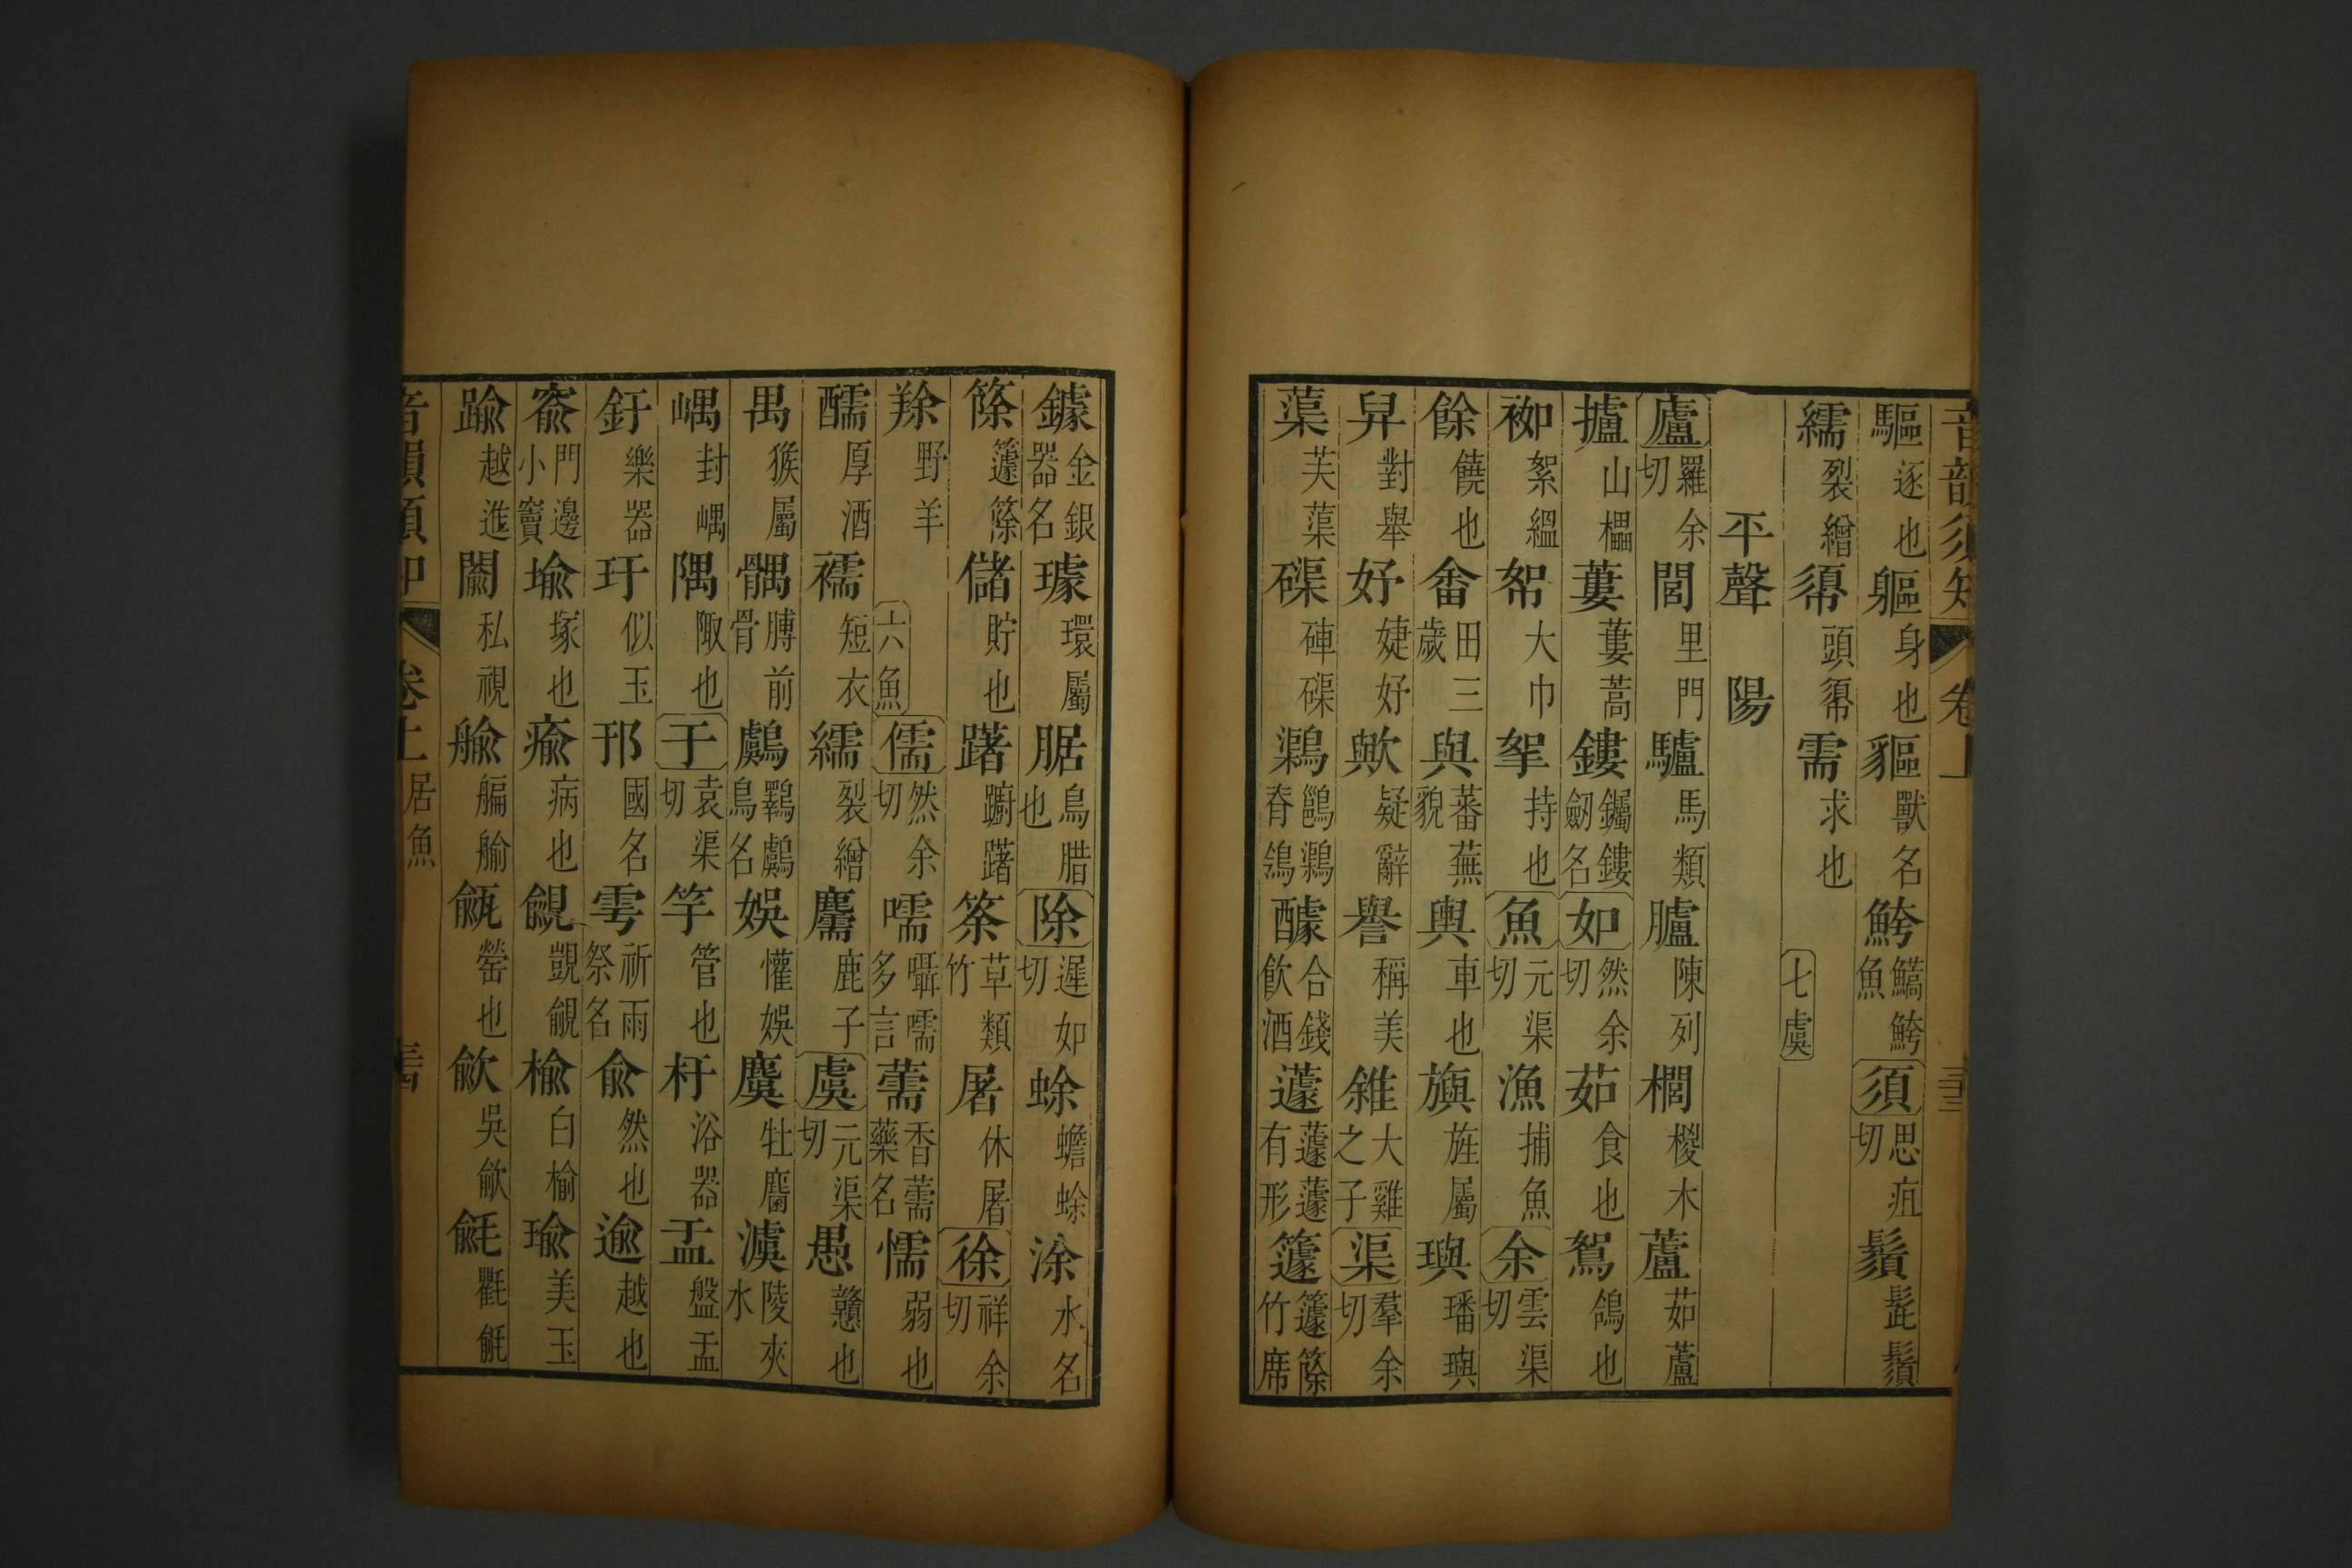 音韻須知 卷上
驅逐也軀身也貙獸名鮬鰝鮬魚須思疽切鬚髭鬚
繻裂繒頭需求也 七虞
平聲 陽
廬羅余切閭里門驢馬類臚陳列櫚椶木蘆茹蘆
攎山櫑蔞蔞蒿鏤钃鏤劒名如然余切茹食也鴽鴿也
袽絮縕帤大巾挐持也魚元渠切漁捕魚余雲渠切
餘饒也畬田三歲與蕃蕪貌輿車也旟旌屬璵璠璵
舁對舉妤婕妤歟疑辭譽稱美雓大雞之子渠羣余切
蕖芙蕖磲硨磲鸂醵合錢飲酒蘧蘧蘧有形籧籧篨竹席
鐻金銀器名璩環屬腒鳥腊也除遲如切蜍蟾蜍涂水名
篨籧篨儲貯也躇躕躇筡草類竹屠休屠徐祥余切
䍱野羊 六魚 儒然余切嚅囁嚅多言薷香薷藥名懦弱也
醹厚酒襦短衣繻裂繒麢鹿子虞元渠切愚戇也
禺猴屬髃膊前骨鸆鸅鸆鳥名娛懽娛麌牡麕澞陵夾水
嵎封嵎隅陬也于袁渠切竽管也杅浴器盂盤盂
釪樂器玗似玉邘國名雩祈雨祭名俞然也逾越也
窬門邊小竇堬塚也瘉病也覦覬覦榆白榆瑜美玉
踰越進闟私視艅艑艅㼶罃也歈吳歈毹氍毹
音韻須知 卷上 居魚